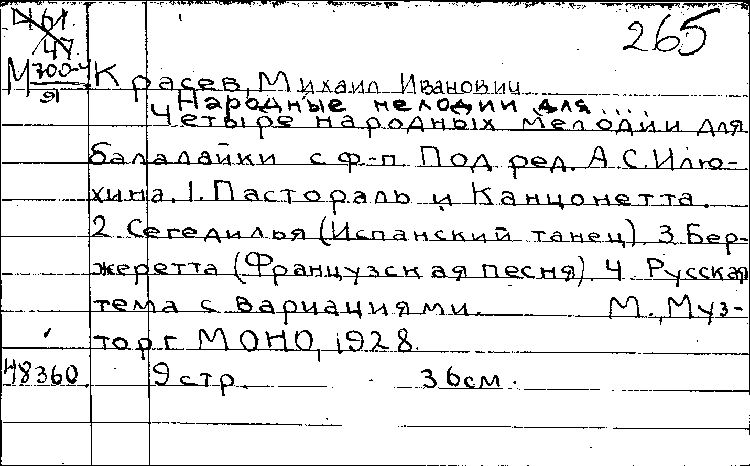 461.
47.
265
М 700-4/Я
Красев, Михаил Иванович
Народные мелодии для ....
Четыре народных мелодии для
балалайки с ф-п. Под ред. А.С.Илю-
хина. 1. Пастораль и Канцонетта.
2 Сегедилья (Испанский танец). 3. Бер-
жеретта (Французская песня). 4. Русская
тема с вариациями. М., Муз-
торг МОНО, 1928.
48360. 9 стр. 36см.